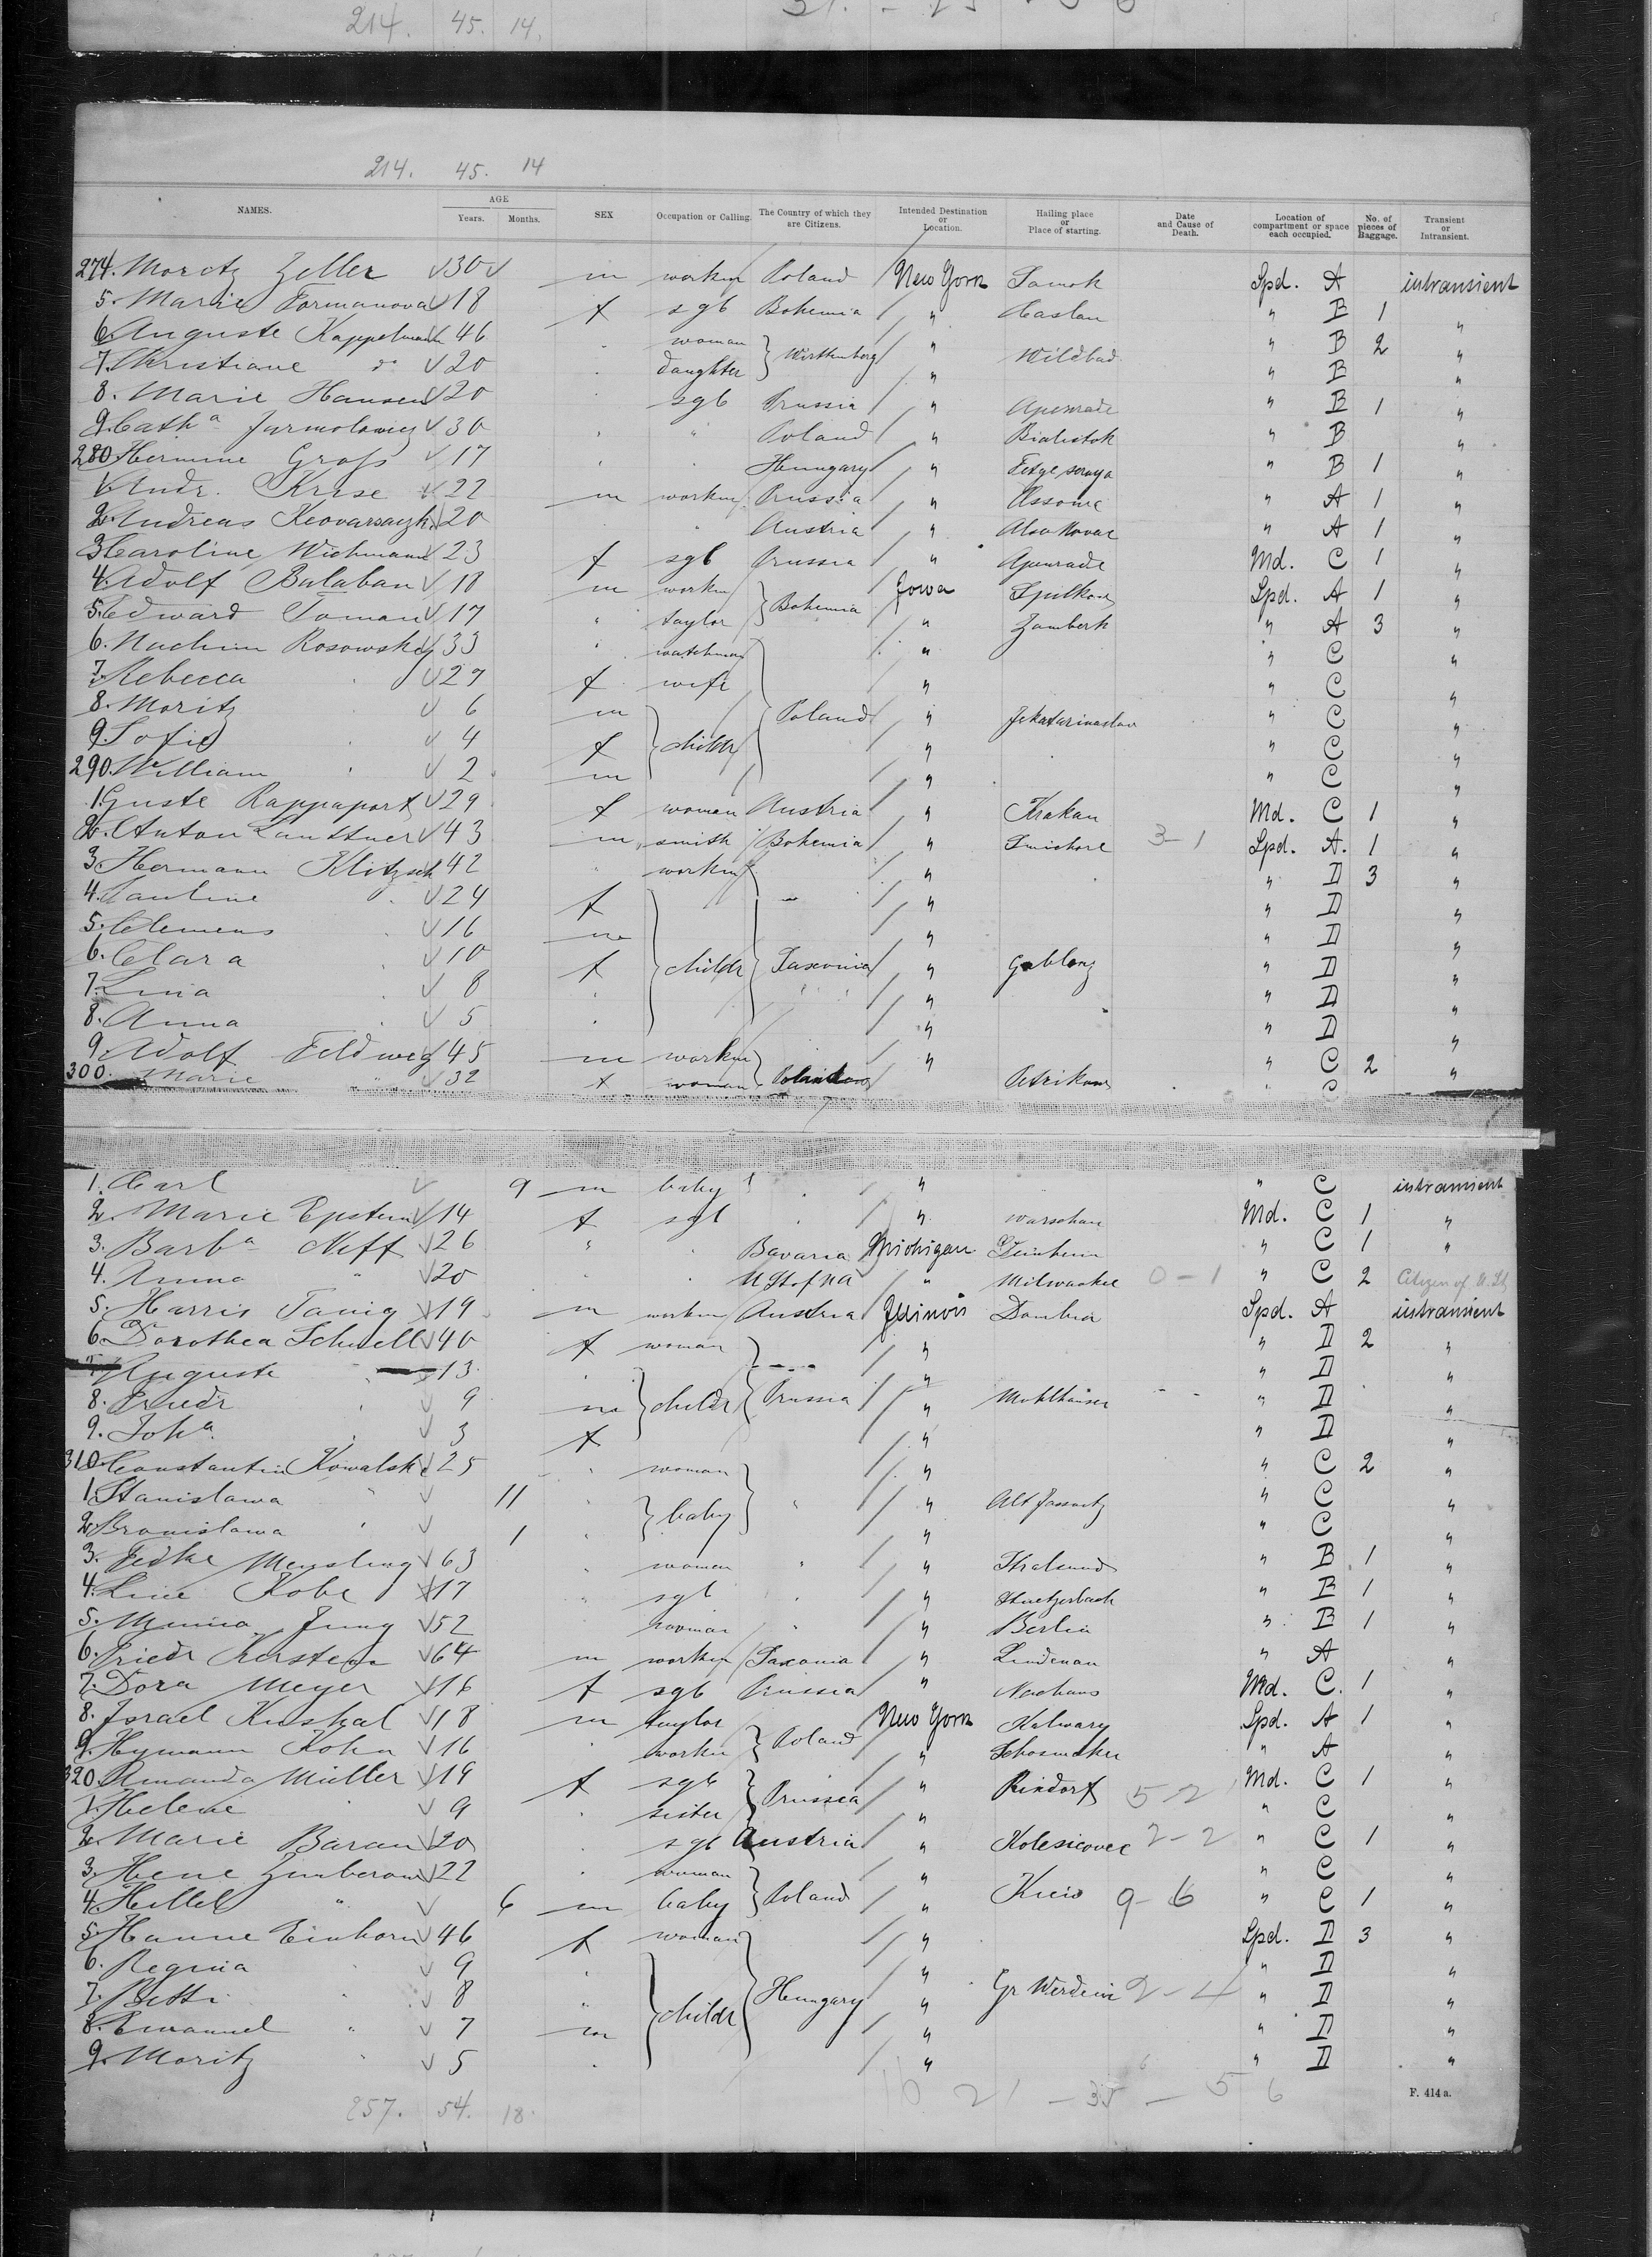 214. 45. 14.
214. 45. 14
NAMES. AGE Years. Months. SEX Occupation or Calling. The Country of which they are Citizens. Intended Destination or Location. Hailing place or Place of starting. Date and Cause of Death. Location of compartment or space each occupied. No. of pieces of Baggage. Transient or Intransient.
274. Moretz Zeller 30 m workm Poland New York Samok Spd. A intransient
5. Marie Formanova 18 f sgl Bohemia " Caslau " B 1 "
6. Auguste Kappelmann 46 woman Wirttenberg " Wildbad " B 2 "
7. Christiane do 20 daughter " " B "
8. Marie Hansen 20 sgl Prussia " Apenrade " B 1 "
9. Catha Jarmolowicz 30 " Poland " Bialistok " B "
280. Hermine Gross 17 Hungary " " B 1 "
1. Andr. Kruse 22 m workm Prussia " Assome " A 1 "
2. Andreas 20 " Austria " " A 1 "
3. Caroline Wichmann 23 f sgl Prussia " Apenrade Md. C 1 "
4. Adolf Balaban 18 m workm Bohemia Iowa Spd. A 1 "
5. Edward Toman 17 " taylor " Zamberk " A 3 "
6. Nachim Rosowsky 33 " watchman Poland " " C "
7. Rebecca 27 f wife " " C "
8. Moritz 6 m childr " Jekatarinaslav " C "
9. Sofie 4 f " " C "
290. William 2 m " " C "
1. Guste Rappaport 29 f woman Austria " Krakau Md. C 1 "
2. Anton Lanttner 43 m smith Bohemia " 3-1 Spd. A. 1 "
3. Hermann Klitzsch 42 workm " " D 3 "
4. Pauline 24 f " " D "
5. Clemens 16 m " " D "
6. Clara 10 f childr Saxonia " Gablonz " D "
7. Lina 8 " " D "
8. Anna 5 " " D "
9. Adolf Feldweg 45 m workm " " C 2 "
300. Marie " 32 f woman Petrikau " C
1. Carl 9 m baby " " C intransient
2. Marie Epstein 14 f sgl " Warschau Md. C 1 "
3. Barba Neff 26 " Bavaria Michigan " C 1 "
4. Anna " 20 U St of NA " Milwaukee 0-1 " C 2 Citizen of U. St.
5. Harris Tanig 19 m workm Austria Illinois Dombia Spd. A intransient
6. Dorothea Schnell 40 f woman " " D 2 "
7. Auguste 13 " " D "
8. Friedr 9 m childr Prussia " Mohlhausen " D "
9. Joha. 3 f " " D "
310. Constantin Kowalski 25 " woman " " C 2 "
1. Stanislawa " 11 " baby " " " C "
2. Bronislawa 1 " " " C "
3. Fedke Mensling 63 woman " " Stralsund " B 1 "
4. Line Kobe 17 " sgl " Stuetzerbach " B 1 "
5. Minna Jung 52 woman " " Berlin " B 1 "
6. Friedr Kerstein 64 m workm Saxonia " Lindenau " A "
7. Dora Meyer 16 f sgl Prussia " Neuhaus Md. C. 1 "
8. Israel Kushal 18 m taylor Poland New York Kalwary Spd. A 1 "
9. Hymann Kohn 16 workm " " A "
320. Amanda Müller 19 f sgl Prussia " Rixdorf 5-2 Md. C 1 "
1. Helene 9 sister " " C "
2. Marie Baran 20 sgl Austria " Kolesicovec 2-2 " C 1 "
3. Hene 22 woman Poland " Kiew 9-6 " C "
4. Hillel " 6 m baby " " C 1 "
5. Hanne Einhorn 46 f woman Hungary " Spd. D 3 "
6. Regina 9 " " " D "
7. Betti 8 " childr " Gr Werdein 2-4 " D "
8. Emanuel " 7 m " " D "
9. Moritz 5 " " D "
257. 54. 18.
F. 414 a.